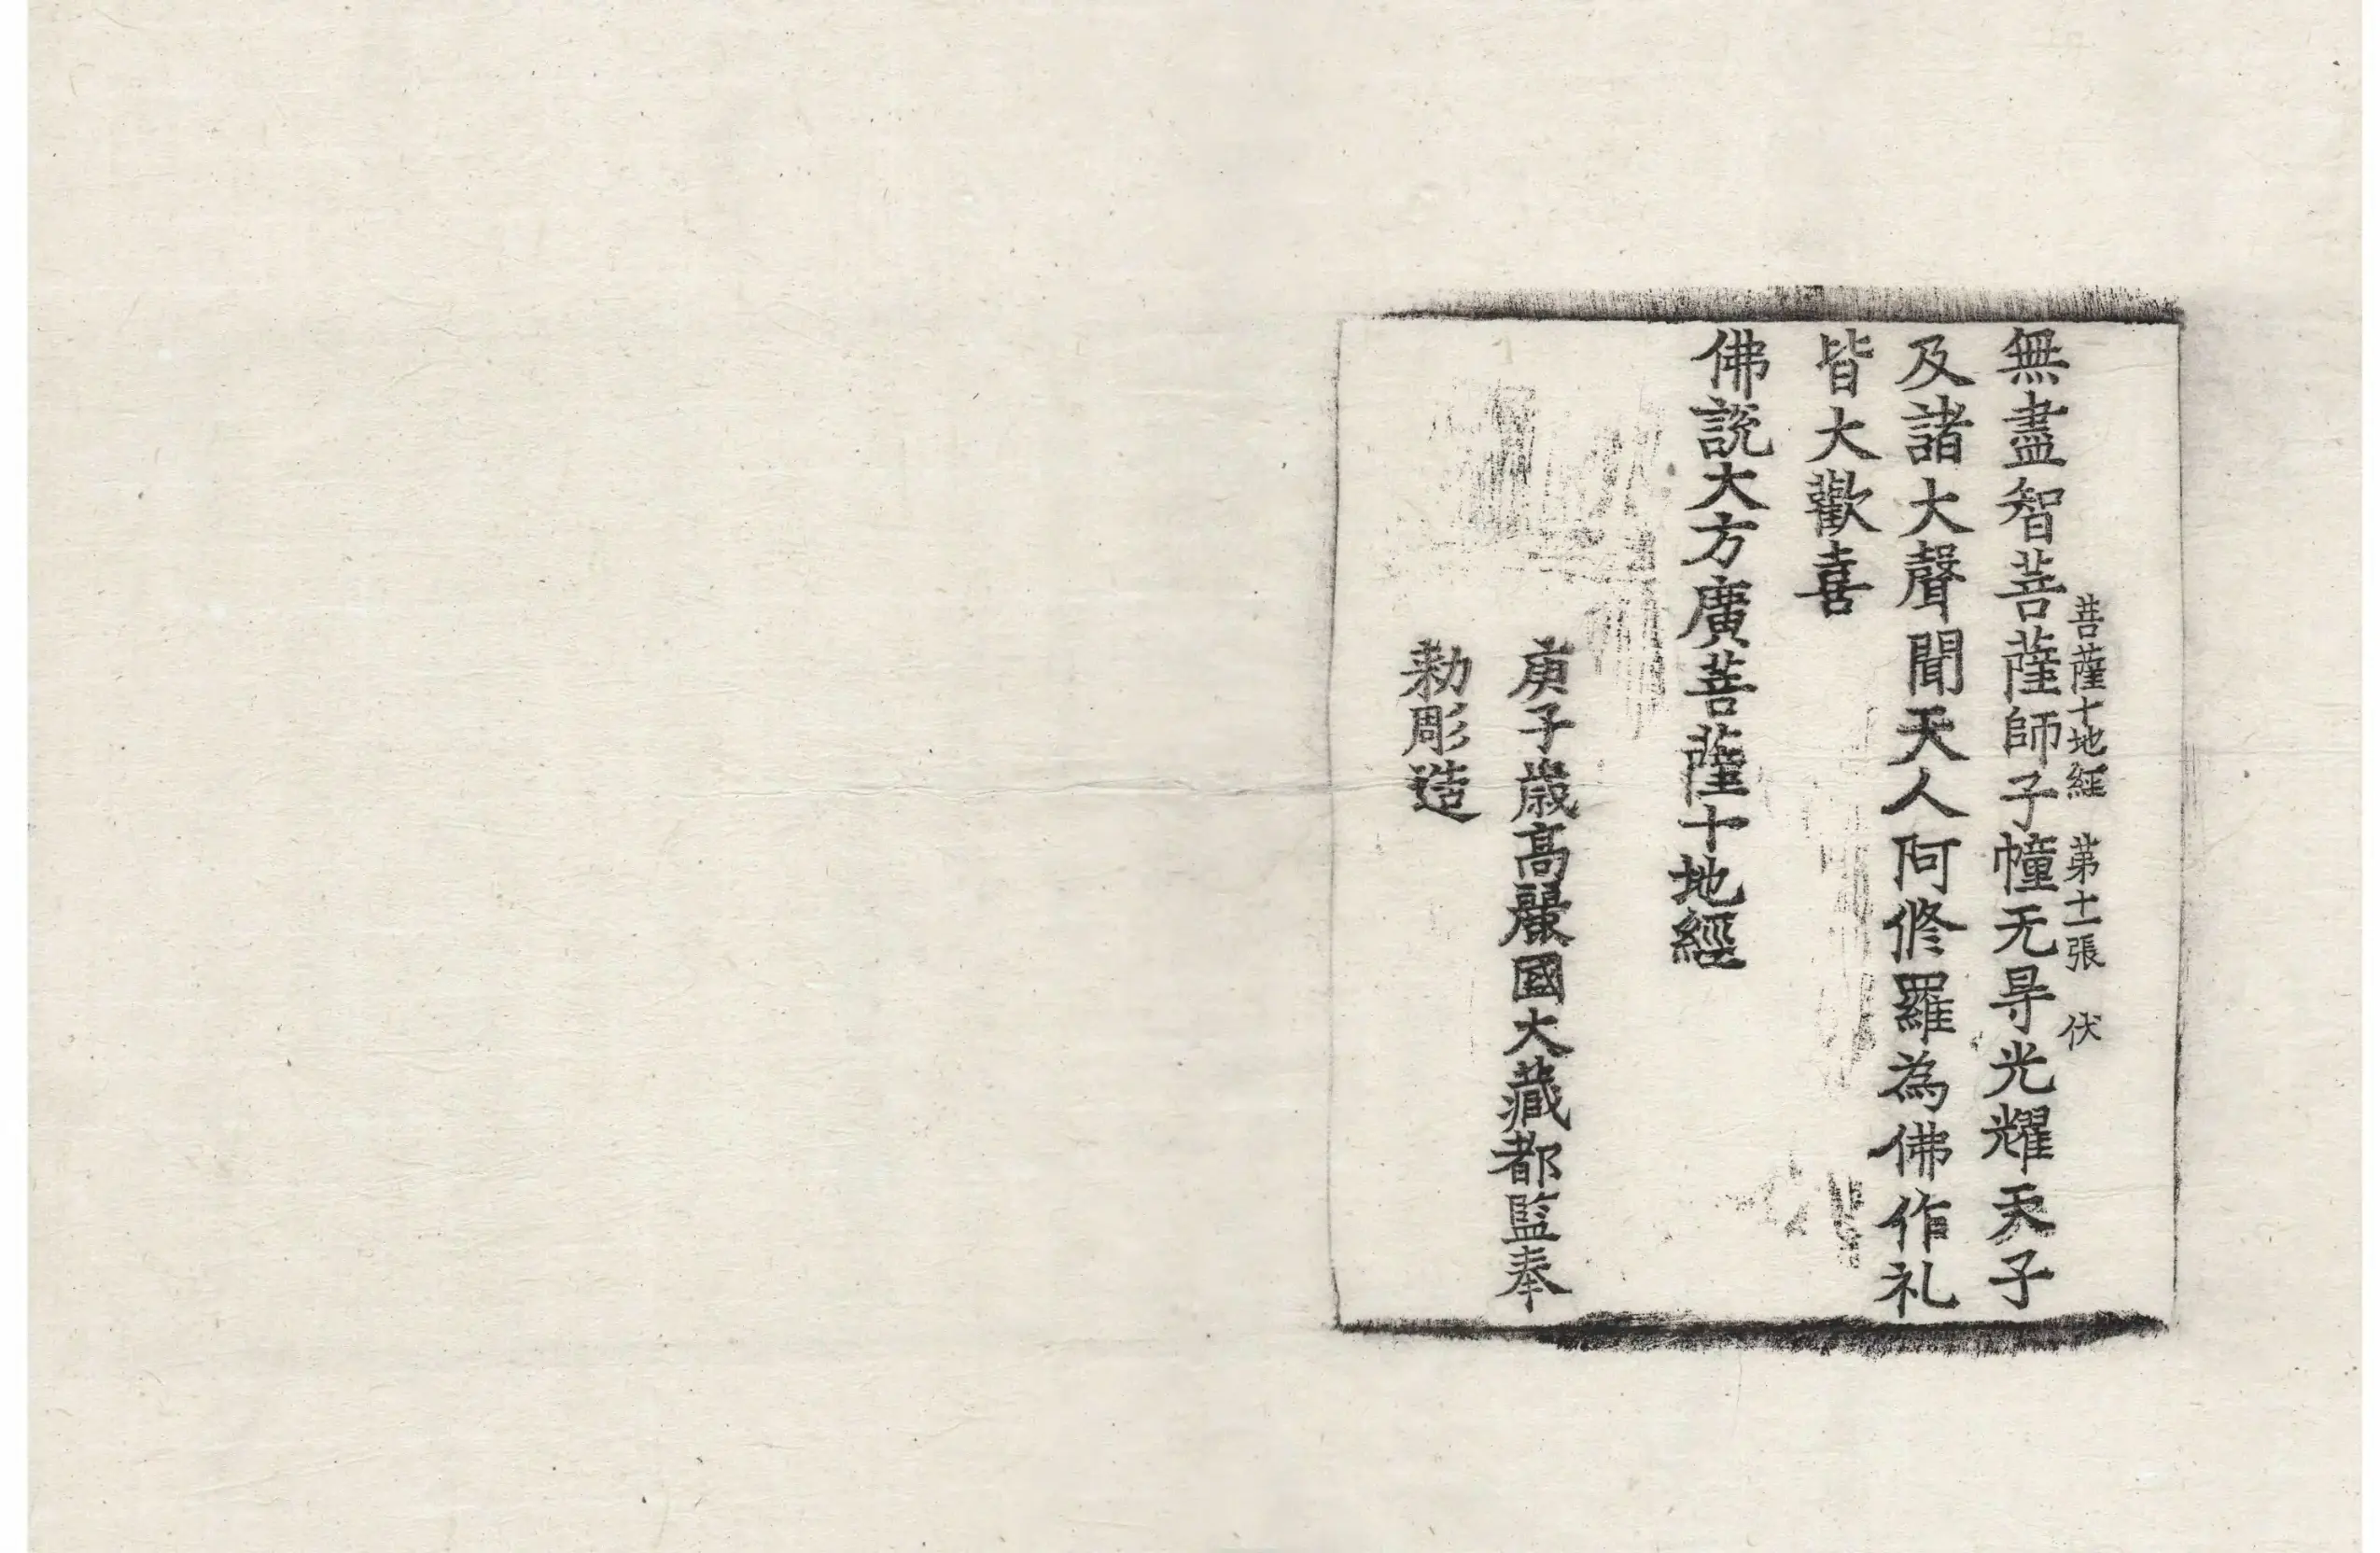 菩薩十地經 第十一張 伏
無盡智菩薩師子幢无㝵光耀天子
及諸大聲聞天人阿修羅為佛作礼
皆大歡喜
佛說大方廣菩薩十地經
庚子歲高麗國大藏都監奉
勑彫造